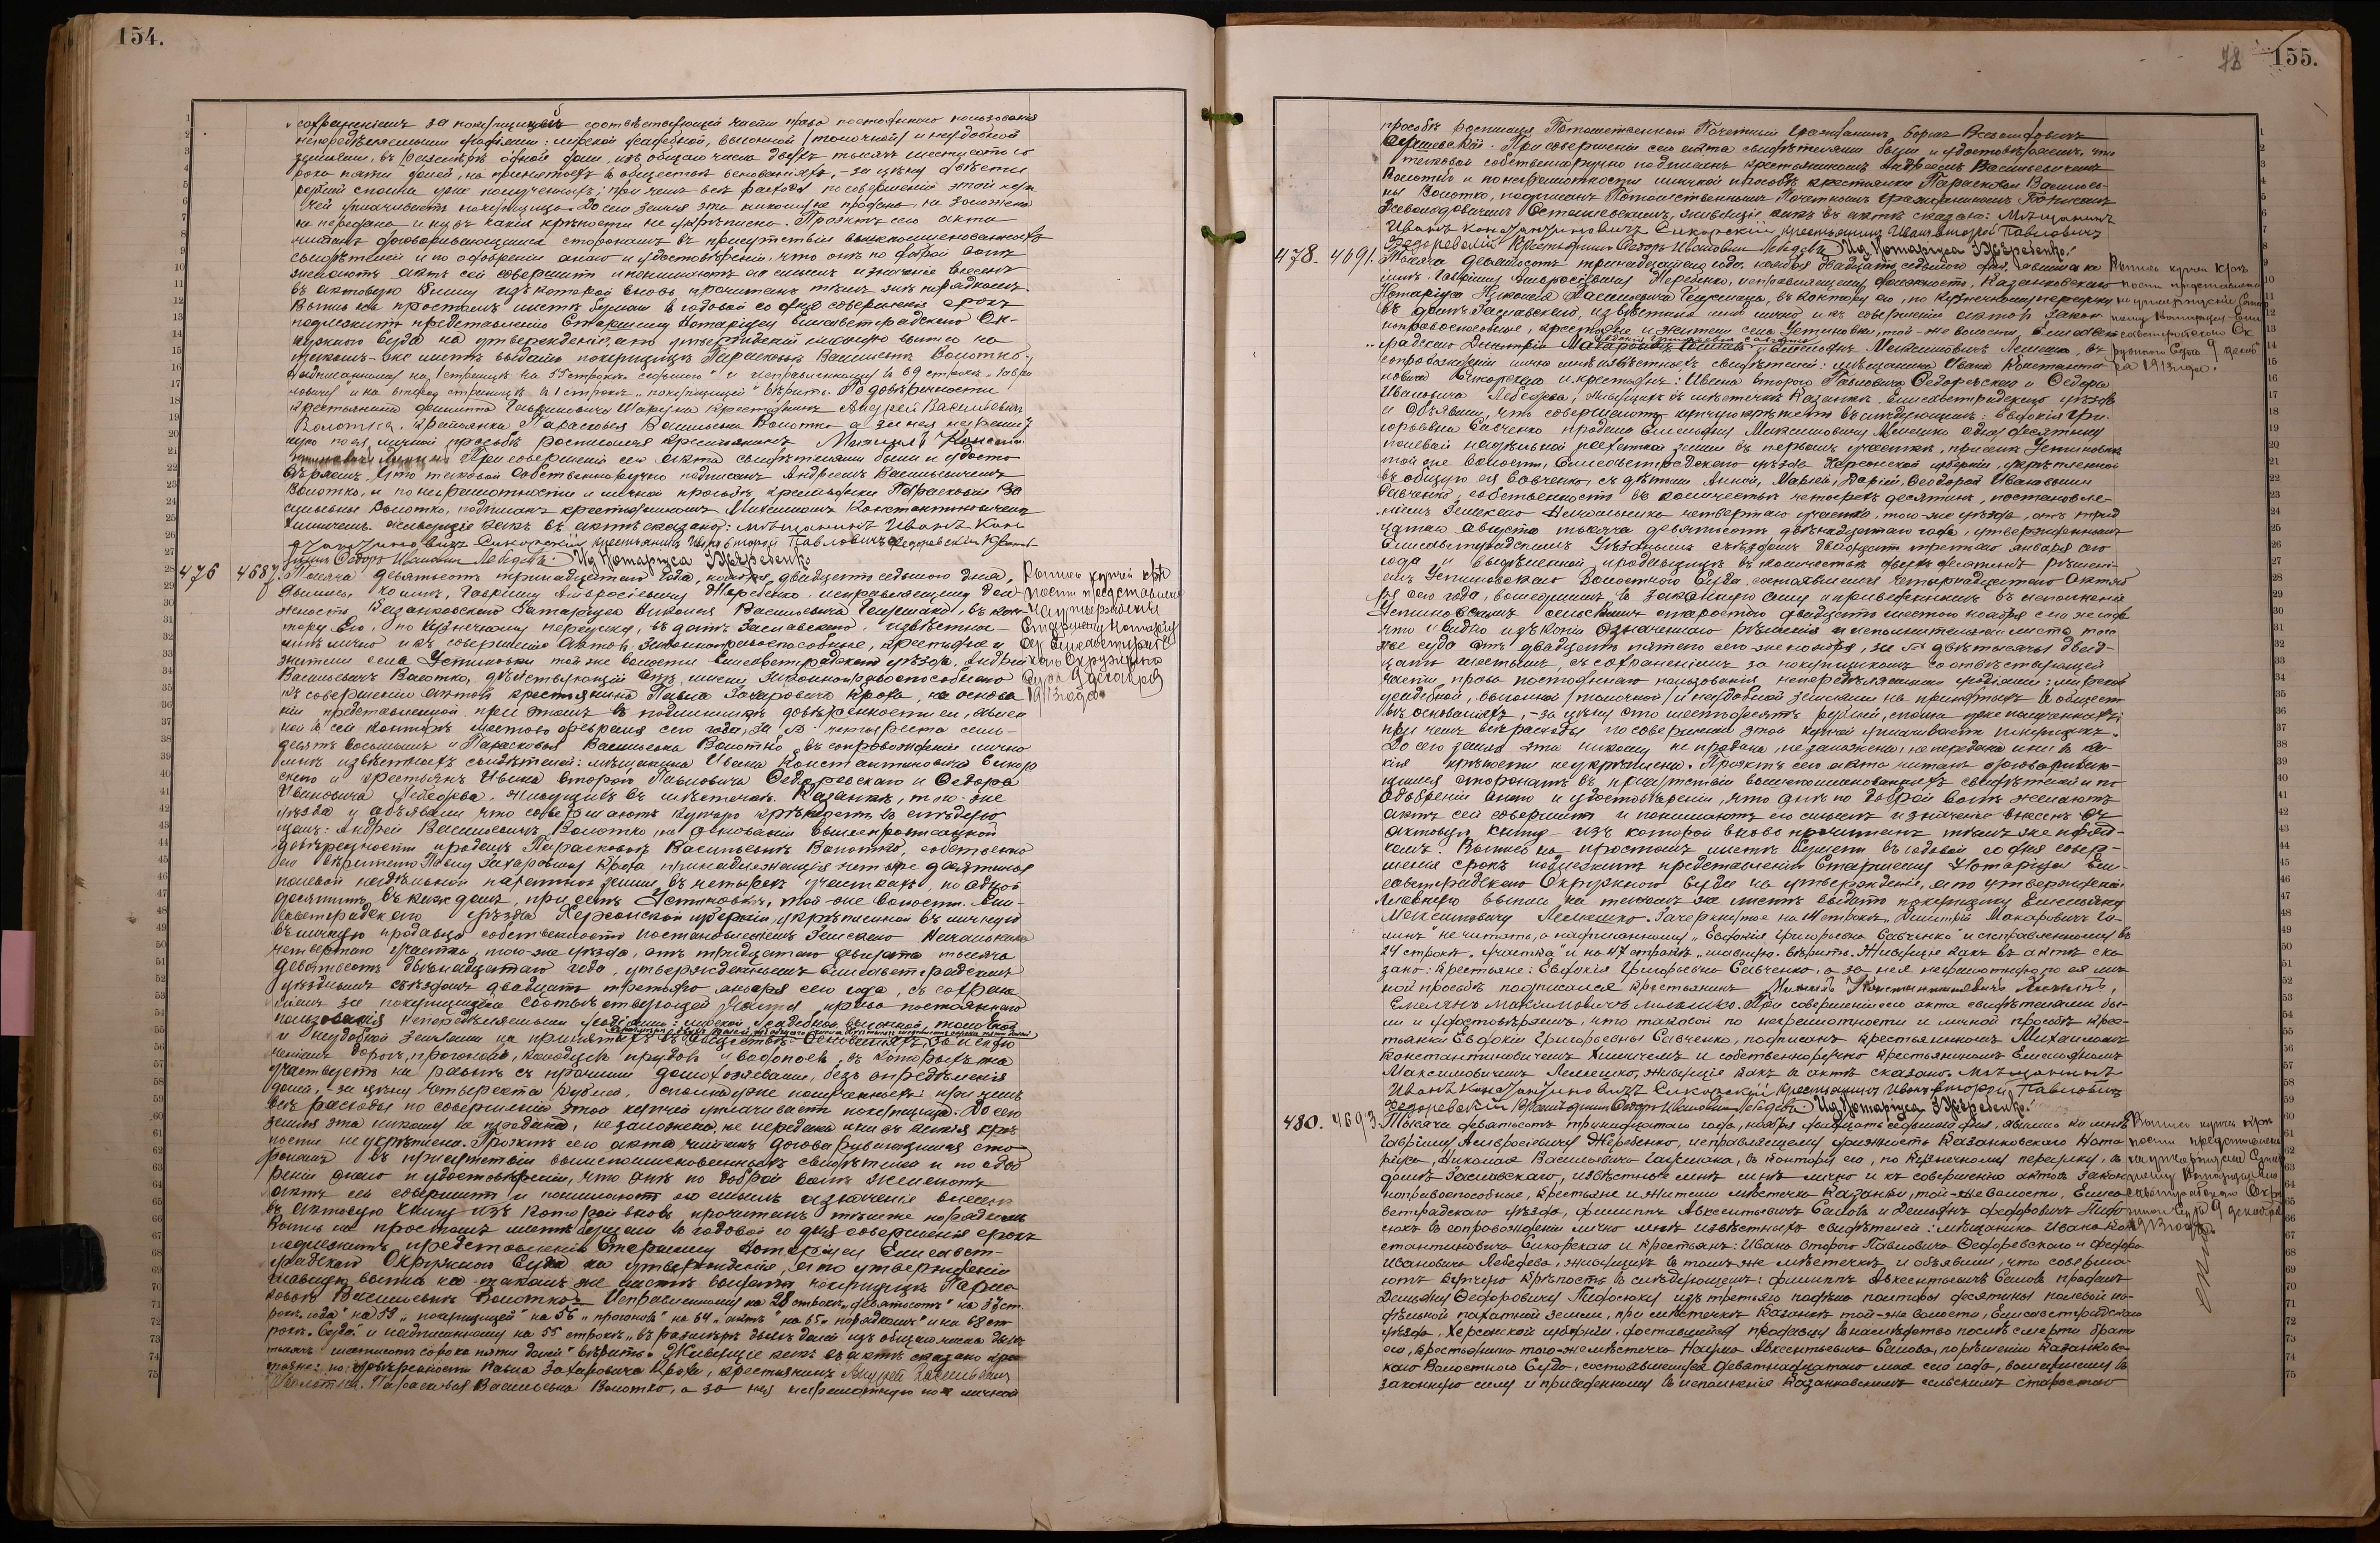 154.
сохраненіемъ за покупщицей соотвѣтствующей части право постояннаго пользованія
непередѣляемыми угодіями: мірской усадебной, выгонной /толочной/ и неудобной
землями, въ размѣрѣ одной доли, изъ общаго числа двухъ тысячъ шестисотъ со
рока пяти долей, на принятыхъ въ обществѣ основаніяхъ, – за цѣну двѣсти
рублей сполна уже полученныхъ; при чемъ всѣ расходы по совершенію этой куп
чей уплачиваетъ покупщица. До сего земля эта никому не продана, не заложена
не передана и ни въ какія крѣпости не укрѣплена. Проэктъ сего акта
читанъ договаривающимся сторонамъ въ присутствіи вышепоименованныхъ
свидѣтелей и по одобреніи онаго и удостовѣреніи, что онѣ по доброй волѣ
желаютъ актъ сей совершить и понимаютъ его смыслъ и значеніе внесенъ
въ актовую книгу изъ которой вновь прочитанъ тѣмъ же порядкомъ.
Выпись на простомъ листѣ бумаги въ годовой со дня совершенія срокъ
подлежитъ представленію Старшему Нотаріусу Елисаветградскаго Ок-
ружнаго Суда на утвержденіе, а по утвержденіи главную выпись на
такомъ-же листѣ выдать покупщицѣ Парасковьѣ Васильевнѣ Волотко,
Крестьянинъ Андрей Васильевичъ
Волотко. Крестьянка Парасковья Васильевна Волотко а за нея неграмот
ную по ея личной просьбѣ росписался крестьянинъ Михаилъ Констан-
При совершеніи сего акта свидѣтелями были и удосто
вѣряемъ, что таковой собственноручно подписанъ Андреемъ Васильевичемъ
Волотко, и по неграмотности и личной просьбѣ крестьянки Парасковьи Ва
сильевны Волотко, подписанъ крестьяниномъ Михаиломъ Константиновичемъ
живущіе какъ въ актѣ сказано: Мѣщанинъ Иванъ Кон
стантиновичъ Сикорскій Крестьянинъ Иванъ второй Павловичъ Федоревскій Кресть-
янинъ Федоръ Ивановичъ Лебедевъ. Ид Нотаріуса Г Жеребенко
476 4687. Тысяча девятьсотъ тринадцатаго года, ноября двадцать седьмого дня,
явились ко мнѣ, Гавріилу Амвросіевичу Жеребенко, исправляющему дол
жность Казанковскаго Нотаріуса Николая Васильевича Гаушмана, въ кон-
тору его, по Кузнечному переулку, въ домѣ Заславскаго, извѣстные
мнѣ лично и къ совершенію актовъ законноправоспособные, крестьяне и
жители села Устиновки той же волости Елисаветградскаго уѣзда, Андрей
Васильевичъ Волотко, дѣйствующій отъ имени законноправоспособнаго
къ совершенію актовъ крестьянина Павла Захаровича Кроха, на основа
ніи представленной при этомъ въ подлинникѣ довѣренности его, явлен
ной въ сей конторѣ шестого февраля сего года, за № четыреста семь-
десятъ восьмымъ и Парасковья Васильевна Волотко, въ сопровожденіи лично
мнѣ извѣстныхъ свидѣтелей: мѣщанина Ивана Константиновича Сикор
скаго и крестьянъ Ивана второго Павловича Федоревскаго и Федора
Ивановича Лебедева, живущихъ въ мѣстечкѣ Казанкѣ, того же
уѣзда и объявили что совершаютъ купчую крѣпость въ слѣдую
щемъ: Андрей Васильевичъ Волотко, на основаніи вышепрописанной
довѣренности продалъ Парасковьѣ Васильевнѣ Волотко, собственно
его вѣрителю Павлу Захаровичу Кроха, принадлежащія четыре десятины
полевой надѣльной пахатной земли въ четырехъ участкахъ, по одной
десятинѣ въ каждомъ, при селѣ Устиновкѣ, той-же волости Ели-
саветградскаго уѣзда Херсонской губерніи, укрѣпленной въ личную
въ личную продавца собственность постановленіемъ Земскаго Начальника
четвертаго участка, того-же уѣзда, отъ тридцатаго августа тысяча
девятьсотъ двѣнадцатаго года, утвержденнымъ Елисаветградскимъ
уѣзднымъ съѣздомъ двадцать третьяго января сего года, съ сохране
ніемъ за покупщицей соотвѣтствующей части право постояннаго
пользованія непередѣляемыми угодіями: мірской усадебной, выгонной, толочной
въ размѣрѣ двухъ долей изъ общаго числа двухъ тысячъ шестисотъ сорока пяти долей
и неудобной землями на принятыхъ въ обществѣ основаніяхъ, за исклю
ченіемъ дорогъ, прогоновъ, колодцевъ прудовъ и водопоевъ, въ которыхъ она
участвуетъ на равнѣ съ прочими домохозяевами, безъ опредѣленія
доли, – за цѣну четыреста рублей, сполна уже полученныхъ при чемъ
всѣ расходы по совершенію этой купчей уплачиваетъ покупщица. До сего
земля эта никому не продана, не заложена, не передана и ни въ какія крѣ
пости не укрѣплена. Проэктъ сего акта читанъ договаривающимся сто
ронамъ въ присутствіи вышепоименованныхъ свидѣтелей и по одоб
реніи онаго и удостовѣреніи, что онѣ по доброй волѣ желаютъ
актъ сей совершить и понимаютъ его смыслъ и значеніе внесенъ
въ актовую книгу изъ которой вновь прочитанъ тѣмъ же порядкомъ
Выпись на простомъ листѣ бумаги въ годовой со дня совершенія срокъ
подлежитъ представленію Старшему Нотаріусу Елисавет-
градскаго Окружнаго Суда на утвержденіе, а по утвержденіи
главную выпись на такомъ же листѣ выдать покупщицѣ Парас
ковьѣ Васильевнѣ Волотко. Исправленному на 28 строкѣ „девятьсотъ“ на 37 ст
рокѣ „года“ на 53 „покупщицей“ на 56 „прогоновъ“ на 64 „актъ“ на 65 „порядкомъ“ и на 68 ст
рокѣ „Суда“ и надписанному на 55 строкѣ „въ размѣрѣ двухъ долей изъ общаго числа двухъ
тысячъ шестисотъ сорока пяти долей“ вѣрить. Живущіе какъ въ актѣ сказано кре
стьяне: по довѣренности Павла Захаровича Кроха, крестьянинъ Андрей Васильевичъ
Волотко. Парасковья Васильевна Волотко, а за нея неграмотную по ея личной
Выпись купчей крѣ
пости представлена
на утвержденіе
Старшему Нотаріу
су Елисаветград
скаго Окружнаго
Суда 9 декабря
1913 года
78 155.
просьбѣ росписался Потомственный Почетный Гражданинъ Борисъ Всеволодовичъ
Осташевскій. При совершеніи сего акта свидѣтелями были и удостовѣряемъ, что
таковой собственноручно подписанъ крестьяниномъ Андреемъ Васильевичемъ
Волотко и по неграмотности и личной просьбѣ крестьянки Парасковьи Василье-
вны Волотко, подписанъ Потомственнымъ Почетнымъ Гражданиномъ Борисомъ
Всеволодовичемъ Осташевскимъ, живущіе какъ въ актѣ сказано: Мѣщанинъ
Иванъ Константиновичъ Сикорскій Крестьянинъ Иванъ второй Павловичъ
Федоревскій Крестьянинъ Федоръ Ивановичъ Лебедевъ Ид Нотаріуса Г Жеребенко.
478. 4691. Тысяча девятьсотъ тринадцатаго года, ноября двадцать седьмого дня, явились ко
мнѣ, Гавріилу Амвросіевичу Жеребенко, исправляющему должность, Казанковскаго
Нотаріуса Николая Васильевича Гаушмана, въ контору его, по Кузнечному переулку
въ домѣ Заславскаго, извѣстные мнѣ лично и къ совершенію актовъ закон
ноправоспособные, крестьяне и жители села Устиновки, той-же волости, Елисавет
Евдокія Григорьевна Савченко
градскаго Дмитрій Макаровичъ и Емельянъ Максимовичъ Лемешко, въ
сопровожденіи лично мнѣ извѣстныхъ свидѣтелей: мѣщанина Ивана Константи-
новича Сикорскаго и крестьянъ: Ивана второго Павловича Федоревскаго и Федора
Ивановича Лебедева, живущихъ въ мѣстечкѣ Казанкѣ, Елисаветградскаго уѣзда
и объявили, что совершаютъ купчую крѣпость въ слѣдующемъ: Евдокія Гри-
горьевна Савченко продала Емельяну Максимовичу Лемешко одну десятину
полевой надѣльной пахатной земли въ первомъ участкѣ, при селѣ Устиновкѣ
той же волости, Елисаветградскаго уѣзда Херсонской губерніи, укрѣпленной
въ общую ея Савченко, съ дѣтьми Анной, Маріей, Даріей, Феодорой Ивановыми
Савченко, собственность въ количествѣ четырехъ десятинъ, постановле-
ніемъ Земскаго Начальника четвертаго участка, того-же уѣзда, отъ трид
цатаго августа тысяча девятьсотъ двѣнадцатаго года, утвержденнымъ
Елисаветградскимъ Уѣзднымъ съѣздомъ двадцать третьяго января сего
года и выдѣленной продавщицѣ въ количествѣ двухъ десятинъ рѣшені-
емъ Устиновскаго Волостного Суда, состоявшимся четырнадцатаго октяб
ря сего года, вошедшимъ въ законную силу и приведеннымъ въ исполненіе
Устиновскимъ сельскимъ старостою двадцать шестого ноября сего же года
что видно изъ копіи означеннаго рѣшенія и исполнительнаго листа того
же суда отъ двадцать пятаго сего же ноября, за № двѣ тысячи двад-
цать шестымъ, съ сохраненіемъ за покупщикомъ соотвѣтствующей
части, право постояннаго пользованія непередѣляемыми угодіями: мірской
усадебной, выгонной /толочной/ и неудобной землями на принятыхъ въ общест
вѣ основаніяхъ, – за цѣну сто шестьдесятъ рублей, сполна уже полученныхъ;
при чемъ всѣ расходы по совершенію этой купчей уплачиваетъ покупщикъ.
До сего земля эта никому не продана, не заложена, не передана и ни въ ка-
кія крѣпости не укрѣплена. Проэктъ сего акта читанъ договариваю-
щимся сторонамъ въ присутствіи вышепоименованныхъ свидѣтелей и по
одобреніи онаго и удостовѣреніи, что онѣ по доброй волѣ желаютъ
актъ сей совершить и понимаютъ его смыслъ и значеніе внесенъ въ
актовую книгу изъ которой вновь прочитанъ тѣмъ же поряд-
комъ. Выпись на простомъ листѣ бумаги въ годовой со дня совер-
шенія срокъ подлежитъ представленію Старшему Нотаріусу Ели-
саветградскаго Окружнаго Суда на утвержденіе, а по утвержденіи
главную выпись на такомъ же листѣ выдать покупщику Емельяну
Максимовичу Лемешко. Зачеркнутое на 14 строкѣ „Дмитрій Макаровичъ
не читать, а надписанному „Евдокія Григорьевна Савченко“ и исправленному въ
24 строкѣ „участка“ и на 47 строкѣ „главную“ вѣрить. Живущіе какъ въ актѣ ска
зано: Крестьяне: Евдокія Григорьевна Савченко, а за нея неграмотную по ея лич
ной просьбѣ подписался крестьянинъ Михаилъ Константиновичъ
Емельянъ Максимовичъ Лемешко. При совершеніи сего акта свидѣтелями бы-
ли и удостовѣряемъ, что таковой по неграмотности и личной просьбѣ крес-
тьянки Евдокіи Григорьевны Савченко, подписанъ крестьяниномъ Михаиломъ
Константиновичемъ и собственноручно крестьяниномъ Емельяномъ
Максимовичемъ Лемешко, живущіе какъ въ актѣ сказано. Мѣщанинъ
Иванъ Константиновичъ Сикорскій Крестьянинъ Иванъ второй Павловичъ
Федоревскій Крестьянинъ Федоръ Ивановичъ Лебедевъ Ид Нотаріуса Г Жеребенко.
480. 4693. Тысяча девятьсотъ тринадцатаго года, ноября двадцать седьмого дня, явились ко мнѣ
Гавріилу Амвросіевичу Жеребенко, исправляющему должность Казанковскаго Нота
ріуса, Николая Васильевича Гаушмана, въ контору его, по Кузнечному переулку, въ
домѣ Заславскаго, извѣстные мнѣ лично и къ совершенію актовъ закон
ноправоспособные, крестьяне и жители мѣстечка Казанки, той-же волости, Елиса
ветградскаго уѣзда, Филиппъ Авксентьевичъ Саловъ и Демьянъ Федоровичъ
въ сопровожденіи лично мнѣ извѣстныхъ свидѣтелей: мѣщанина Ивана Кон
стантиновича Сикорскаго и крестьянъ: Ивана второго Павловича Федоревскаго и Федора
Ивановича Лебедева, живущихъ въ томъ же мѣстечкѣ и объявили, что соверша-
ютъ купчую крѣпость въ слѣдующемъ: Филиппъ Авксентьевичъ Саловъ продалъ
Демьяну Федоровичу изъ третьяго надѣла полторы десятины полевой на-
дѣльной пахатной земли, при мѣстечкѣ Казанкѣ той-же волости, Елисаветградскаго
уѣзда, Херсонской губерніи, доставшейся продавцу въ наслѣдство послѣ смерти брата
его, крестьянина того-же мѣстечка Наума Авксентьевича Салова, по рѣшенію Казанковс-
каго Волостного Суда, состоявшемуся девятнадцатаго мая сего года, вошедшему въ
законную силу и приведенному въ исполненіе Казанковскимъ сельскимъ старостою
Выпись купчей крѣ
пости представлена
на утвержденіе Стар
шему Нотаріусу Ели
саветградскаго Ок
ружнаго Суда 9 декаб
ря 1913 года.
Выпись купчей крѣ
пости представлена
на утвержденіе Стар
шему Нотаріусу Ели
саветградскаго Окру
жнаго Суда 9 декабря
1913 года